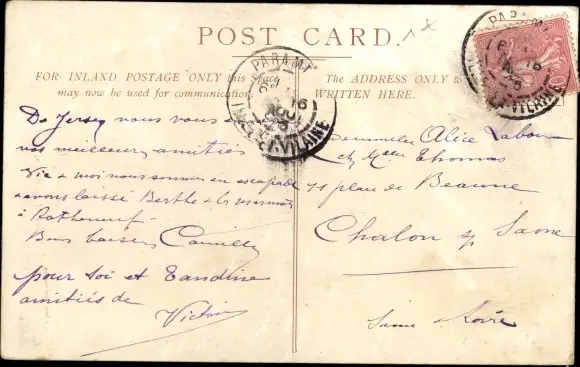 POST CARD.
FOR INLAND POSTAGE ONLY this Space
may now be used for communication.
The ADDRESS ONLY to
WRITTEN HERE.
PARAMÉ
16
AOUT
ILLE-ET-VILAINE
PARAMÉ
16
ILLE-ET-VILAINE
De Jersey nous vous
nos meilleures amitiés
Vic & moi nous sommes en escapade
& avons laissé Berthe & les marmots
à Rothéneuf
Bons baisers Camille
pour toi et Tandine
amitiés de
Victoire
Demoiselle Alice
ch Mme Thomas
place de Beaune
Chalon s/ Saone
Saone & Loire